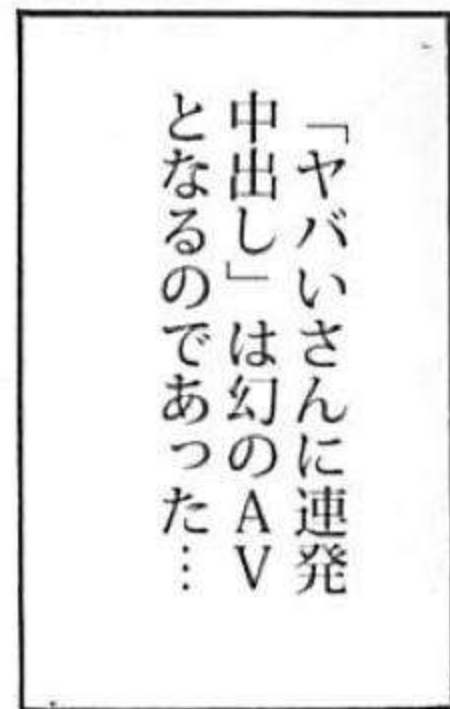 「ヤバいさんに連発
中出し」は幻のAV
となるのであった…